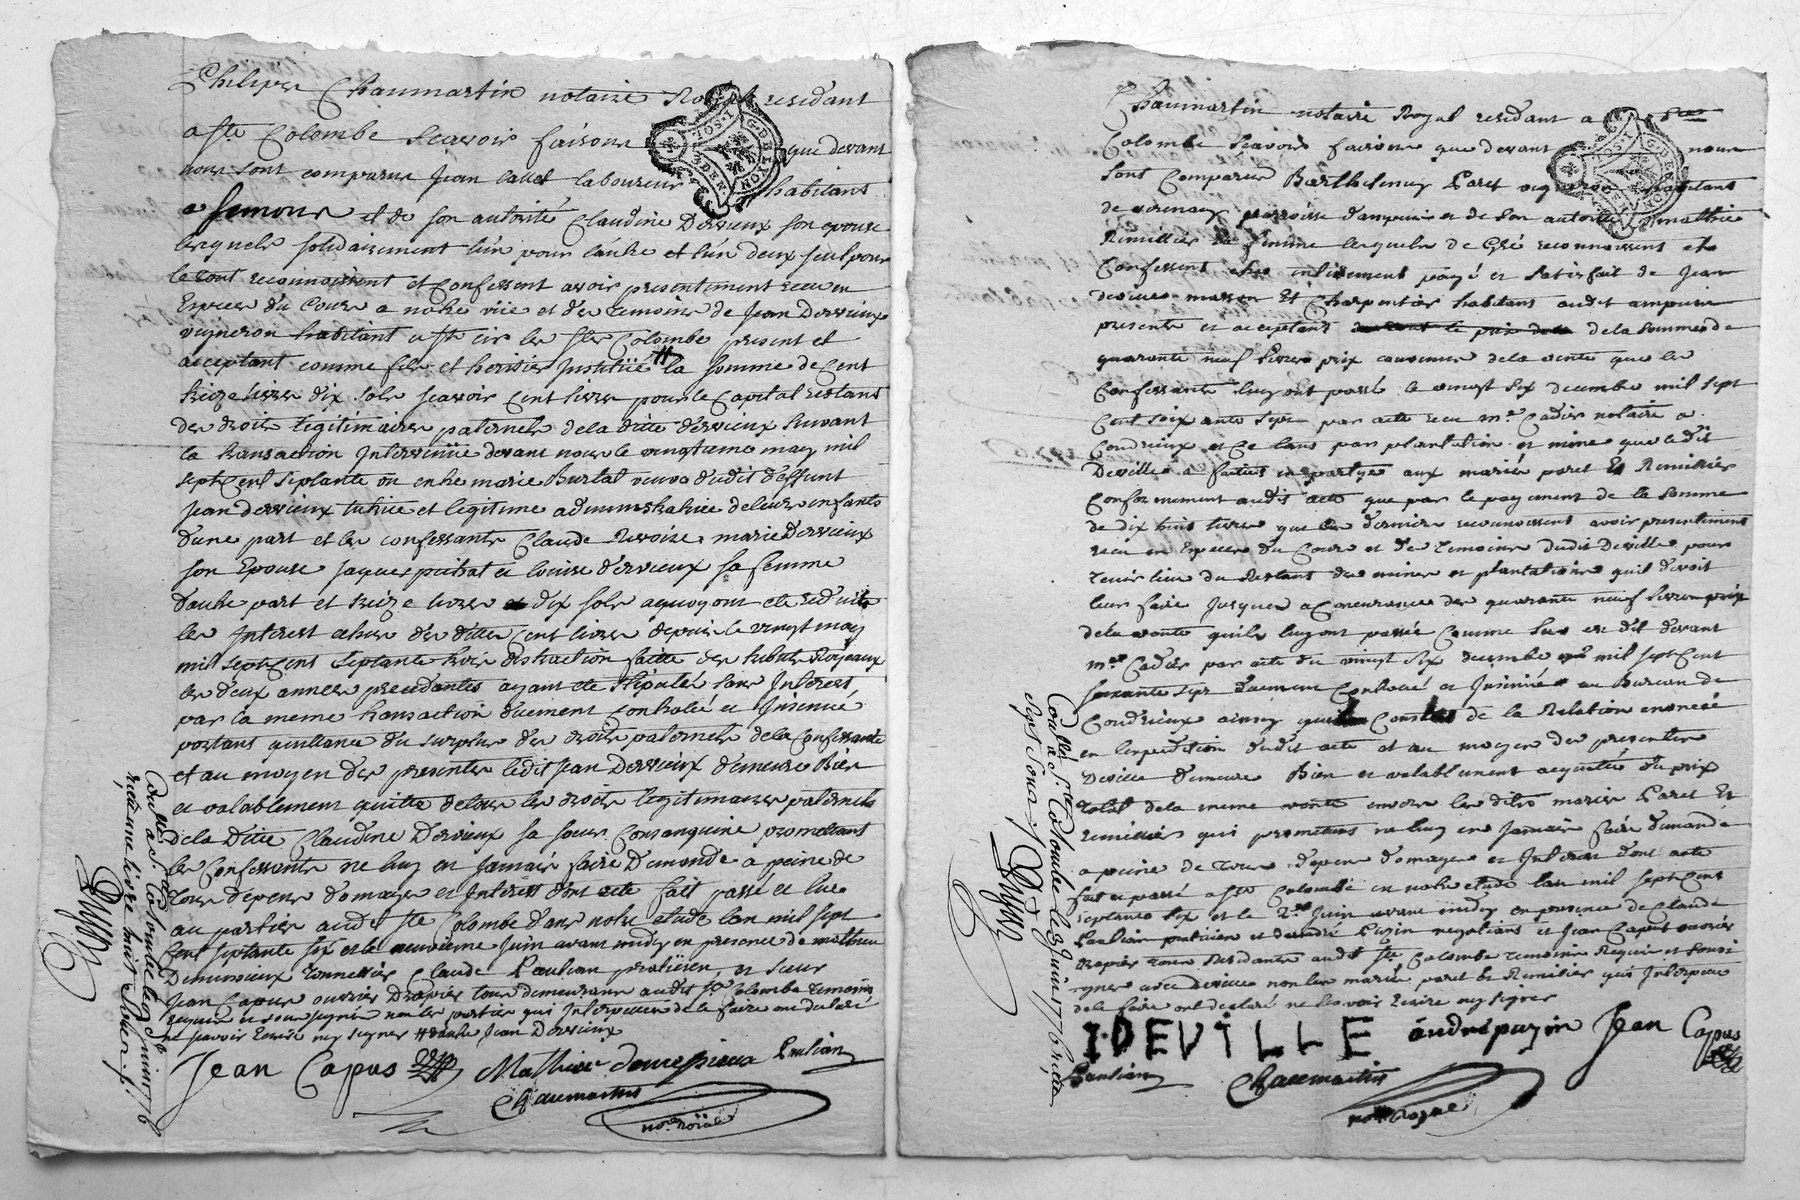 Philippe Chaumartin notaire Royal residant
a Ste Colombe scavoir faisons que devant
nous sont comparus Jean laboureur habitant
a Semons et de son autorité Claudine Dervieux son epouse
lesquels solidairement l'un pour l'autre et l'un deux seul pour
le tout reconnoissent et confessent avoir presentement receu en
Especes du Cours a notre vüe et des temoins de Jean Dervieux
vigneron habitant a st cir les ste Colombe present et
acceptant comme fils et heritier Justitüé # la somme de cent
treize livres dix sols scavoir Cent livres pour le Capital restant
des droits légitimaires paternels de la ditte dervieux suivant
la transaction Intervenüe devant nous le vingtieme may mil
sept Cent septante un entre marie Burtal veuve dudit deffunt
Jean dervieux tutrice et légitime administratrice de leurs enfants
d'une part et les confessants Claude Revoire marie Dervieux
son Epouse Jaques et louise dervieux sa femme
d'autre part et treize livres dix sols aquoy ont ete reduits
les Interest des dittes Cent livres depuis le vingt may
mil sept Cent septante trois distraction faitte des tributs Royaux
les deux années precedantes ayant ete stipulés sans Interest
par la meme transaction düement controlée et Insinué
portant quittance du surplus des droits paternels de la Confessante
et au moyen des presentes ledit Jean Dervieux demeure Bien
et valablement quitte de tous les droits legitimaires paternels
de la Ditte Claudine Dervieux sa soeur Consanguine promettant
les Confessants ne luy en Jamais faire Demande a peine de
tous depens domages et Interest dont acte fait passé et lue
au parties audit Ste Colombe dans notre etude lan mil sept
Cent septante six et le neuvieme Juin avant midy en presence de mathieu
Demussieux tonnelier Claude Paulian praticien, et sieur
Jean Capus ouvrier Drapier tous demeurans audit Ste Colombe temoins
requis et sous signés non les parties qui Interpellées de le faire ont declaré
ne scavoir Ecrire ny signer # dudit Jean Dervieux
Jean Capus Mathieu demussieux Paulian
Chaumartin
nore roïal
Conllé a Ste Colombe le 9 Juin 1776
reçu une livre huit sols
Chaumartin notaire Royal residant a Ste
Colombe Scavoir faisons que devant nous
sont Comparus Barthelemy Paret vigneron habitant
de verenay parroisse dampuis et de son autorité mathie
Remillier sa femme lesquels de Gré reconnoissent et
Confessent etre entierement payé et satisfait de Jean
deville masson Et Charpentier habitant audit ampuis
present et acceptant de la somme de
quarante neuf livres prix convenue de la vente que les
Confessants luy ont passé le vingt six decembre mil sept
Cent soixante sept par acte receu me Cadier notaire a
Condrieux et Ce tant par plantation et mines que ledit
Deville a faites aux mariés paret Et Remillier
Conformement audit acte que par le payement de la somme
de dix huit livres que les derniers reconnoissent avoir presentement
receu en Especes du Cours et des temoins dudit Deville pour
tenir lieu du Restant des mines et plantations quil devoit
leur faire Jusques a Concurrance des quarante neuf livres prix
de la vente quils luy ont passée Comme sus est dit devant
me Cadier par acte du vingt six decembre mil sept Cent
soixante sept duement Controlé et Insinué au Bureau de
Condrieux ainsy quil Conste de la Relation enoncée
en l'expedition dudit acte et au moyen des presentes
Deville demeure Bien et valablement acquitté du prix
total de la meme vente envers les dits mariés Paret Et
remillier qui promettent ne luy en Jamais faire demande
a peine de tous depens domages et Interest dont acte
fait et passé a Ste Colombe en notre etude lan mil sept Cent
septante six et le 2me Juin avant midy en presence de Claude
Paulian praticien et d'andré Puzin negotiant et Jean Capus ouvrier
drapier tous Residants audit Ste Colombe temoins Requis et soussi
signés avec Deville non les mariés paret Et Remillier qui Interpellés
de le faire ont declaré ne scavoir Ecrire ny signer
I·DEVILLE andré puzin Jean Capus
Paulian Chaumartin
nore Royal
Conllé a Ste Colombe le 9 Juin 1776 reçu
sept sous